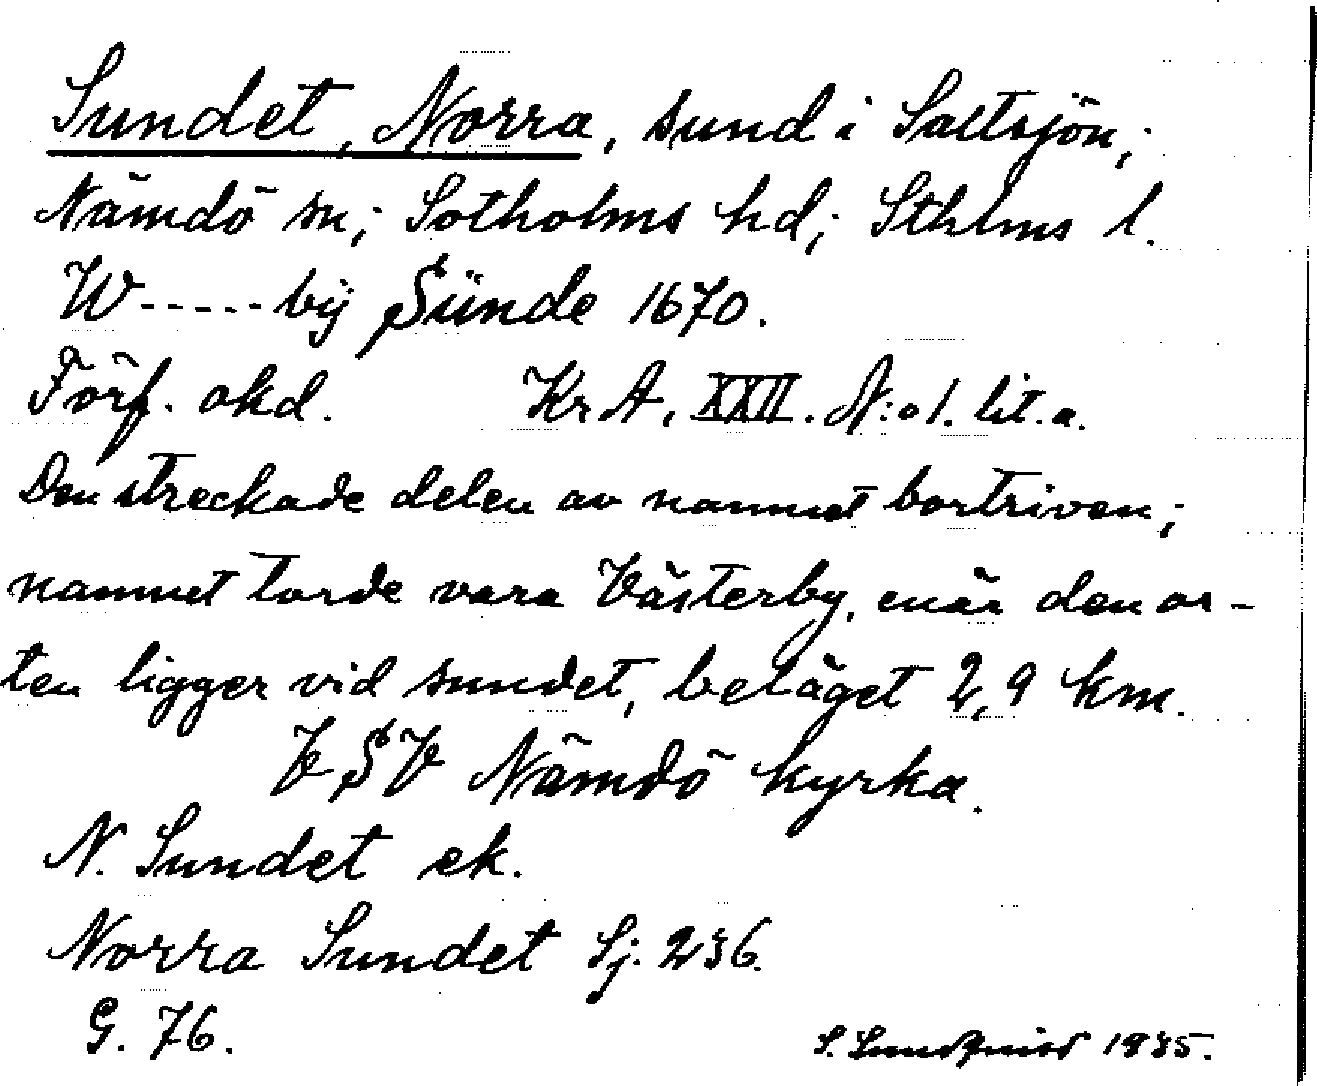 Sundet, Norra, sund i Saltsjön;
Nämdö sn; Sotholms hd; Sthlms l.
W-----bÿ Sünde 1670.
Förf. okd. KrA, XXII. N:o 1. lit. a.
Den streckade delen av namnet bortriven;
namnet torde vara Västerby, enär den or-
ten ligger vid sundet, beläget 2,9 km.
VSV Nämdö kyrka.
N. Sundet ek.
Norra Sundet Sj. 236.
G. 76.
S. Lundqvist 1935.